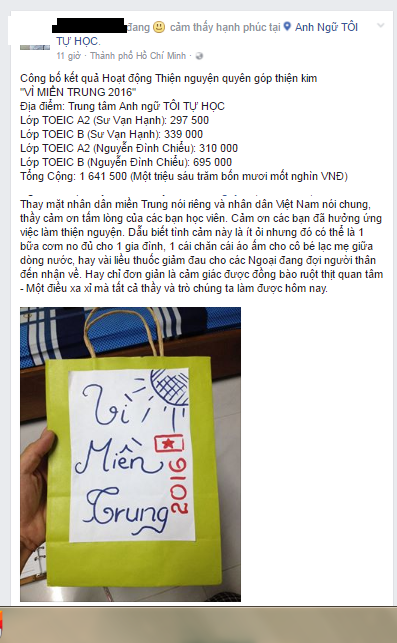 đang 😊 cảm thấy hạnh phúc tại Anh Ngữ TÔI
TỰ HỌC.
11 giờ · Thành phố Hồ Chí Minh ·
Công bố kết quả Hoạt động Thiện nguyện quyên góp thiện kim
"VÌ MIỀN TRUNG 2016"
Địa điểm: Trung tâm Anh ngữ TÔI TỰ HỌC
Lớp TOEIC A2 (Sư Vạn Hạnh): 297 500
Lớp TOEIC B (Sư Vạn Hạnh): 339 000
Lớp TOEIC A2 (Nguyễn Đình Chiểu): 310 000
Lớp TOEIC B (Nguyễn Đình Chiểu): 695 000
Tổng Cộng: 1 641 500 (Một triệu sáu trăm bốn mươi mốt nghìn VNĐ)
Thay mặt nhân dân miền Trung nói riêng và nhân dân Việt Nam nói chung,
thầy cảm ơn tấm lòng của các bạn học viên. Cảm ơn các bạn đã hưởng ứng
việc làm thiện nguyện. Dẫu biết tình cảm này là ít ỏi nhưng đó có thể là 1
bữa cơm no đủ cho 1 gia đình, 1 cái chăn cái áo ấm cho cô bé lạc mẹ giữa
dòng nước, hay vài liều thuốc giảm đau cho các Ngoại đang đợi người thân
đến nhận về. Hay chỉ đơn giản là cảm giác được đồng bào ruột thịt quan tâm
- Một điều xa xỉ mà tất cả thầy và trò chúng ta làm được hôm nay.
Vì
Miền
Trung
2016